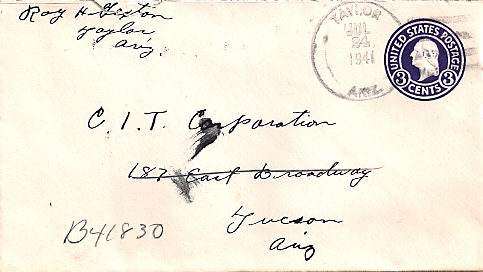 Roy H. Sexton
Taylor
Ariz.
TAYLOR
JUL
24
1941
ARIZ.
UNITED STATES POSTAGE
3 3
CENTS
C. I. T. Corporation
187 East Broadway
Tucson
Ariz
B41830